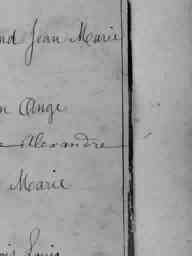 nd Jean Marie
n Ange
e Alexandre
Marie
is Louis